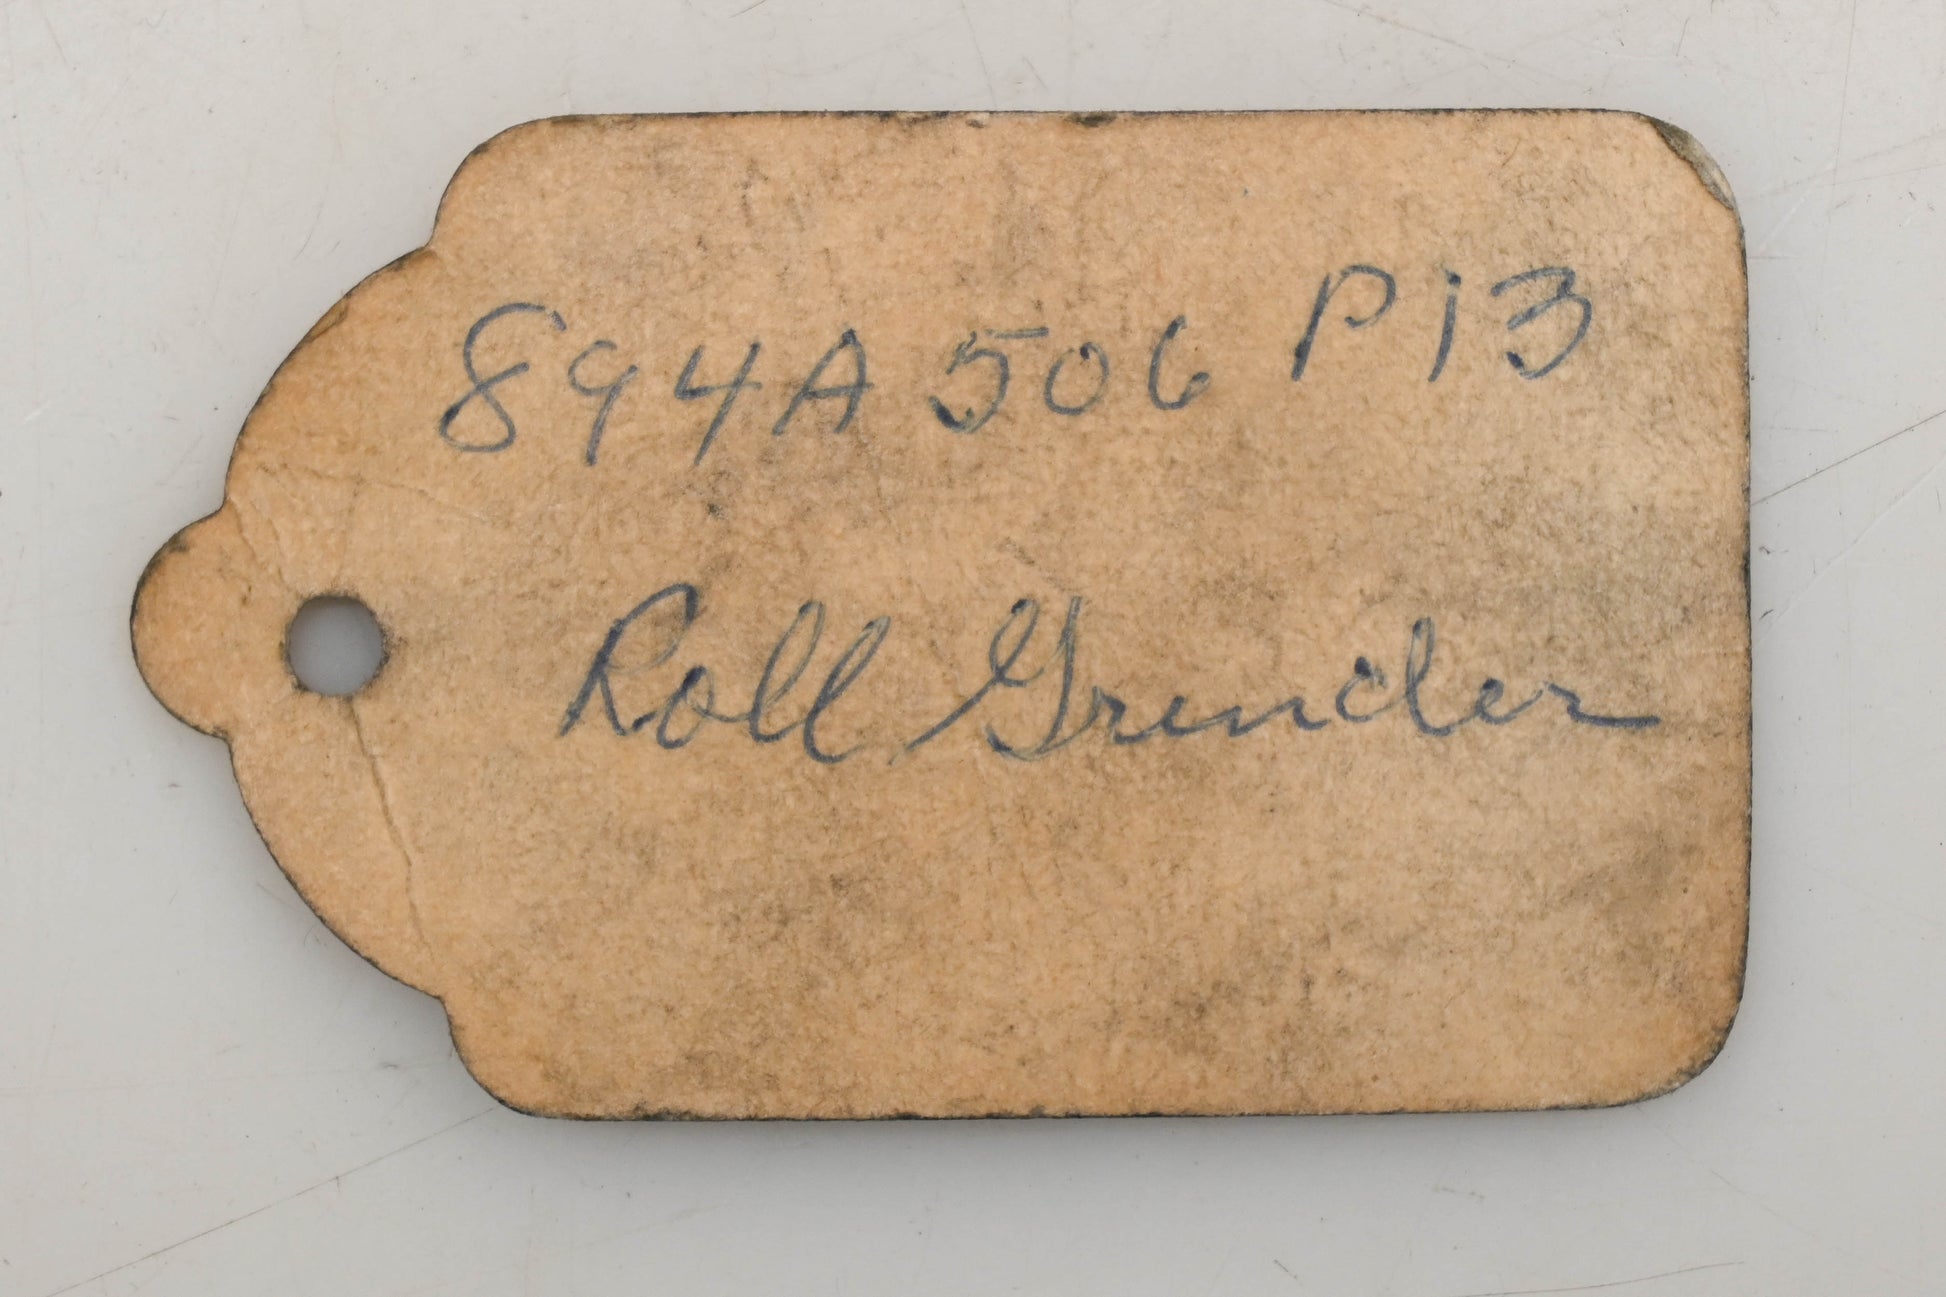 894A506 P13
Roll Grinder